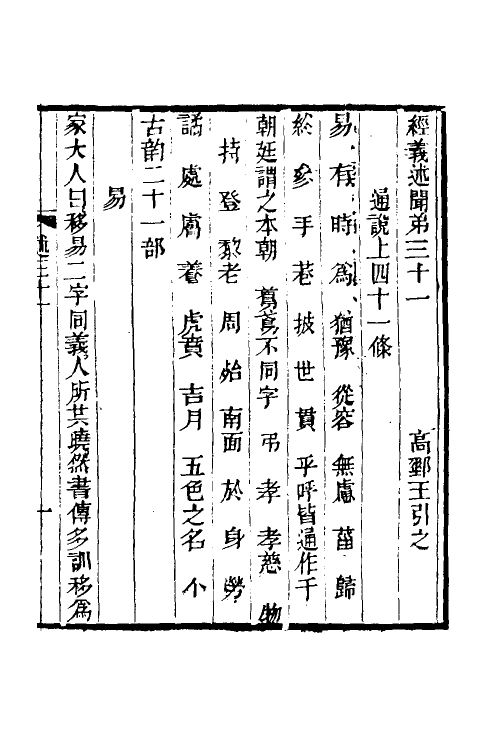 經義述聞弟三十一 高郵王引之
通說上四十一條
易 有 時 爲 猶豫 從容 無慮 葘 歸
終 參 手 巷 披 世 貫 乎呼皆通作干
朝廷謂之本朝 爲不同字 弔 孝 孝慈 物
持 登 黎老 周 始 南面 於 身 勞
話 處 膚 養 虎賁 吉月 五色之名 小
古韵二十一部
易
家大人曰移易二字同義人所共曉然書傳多訓移爲
一